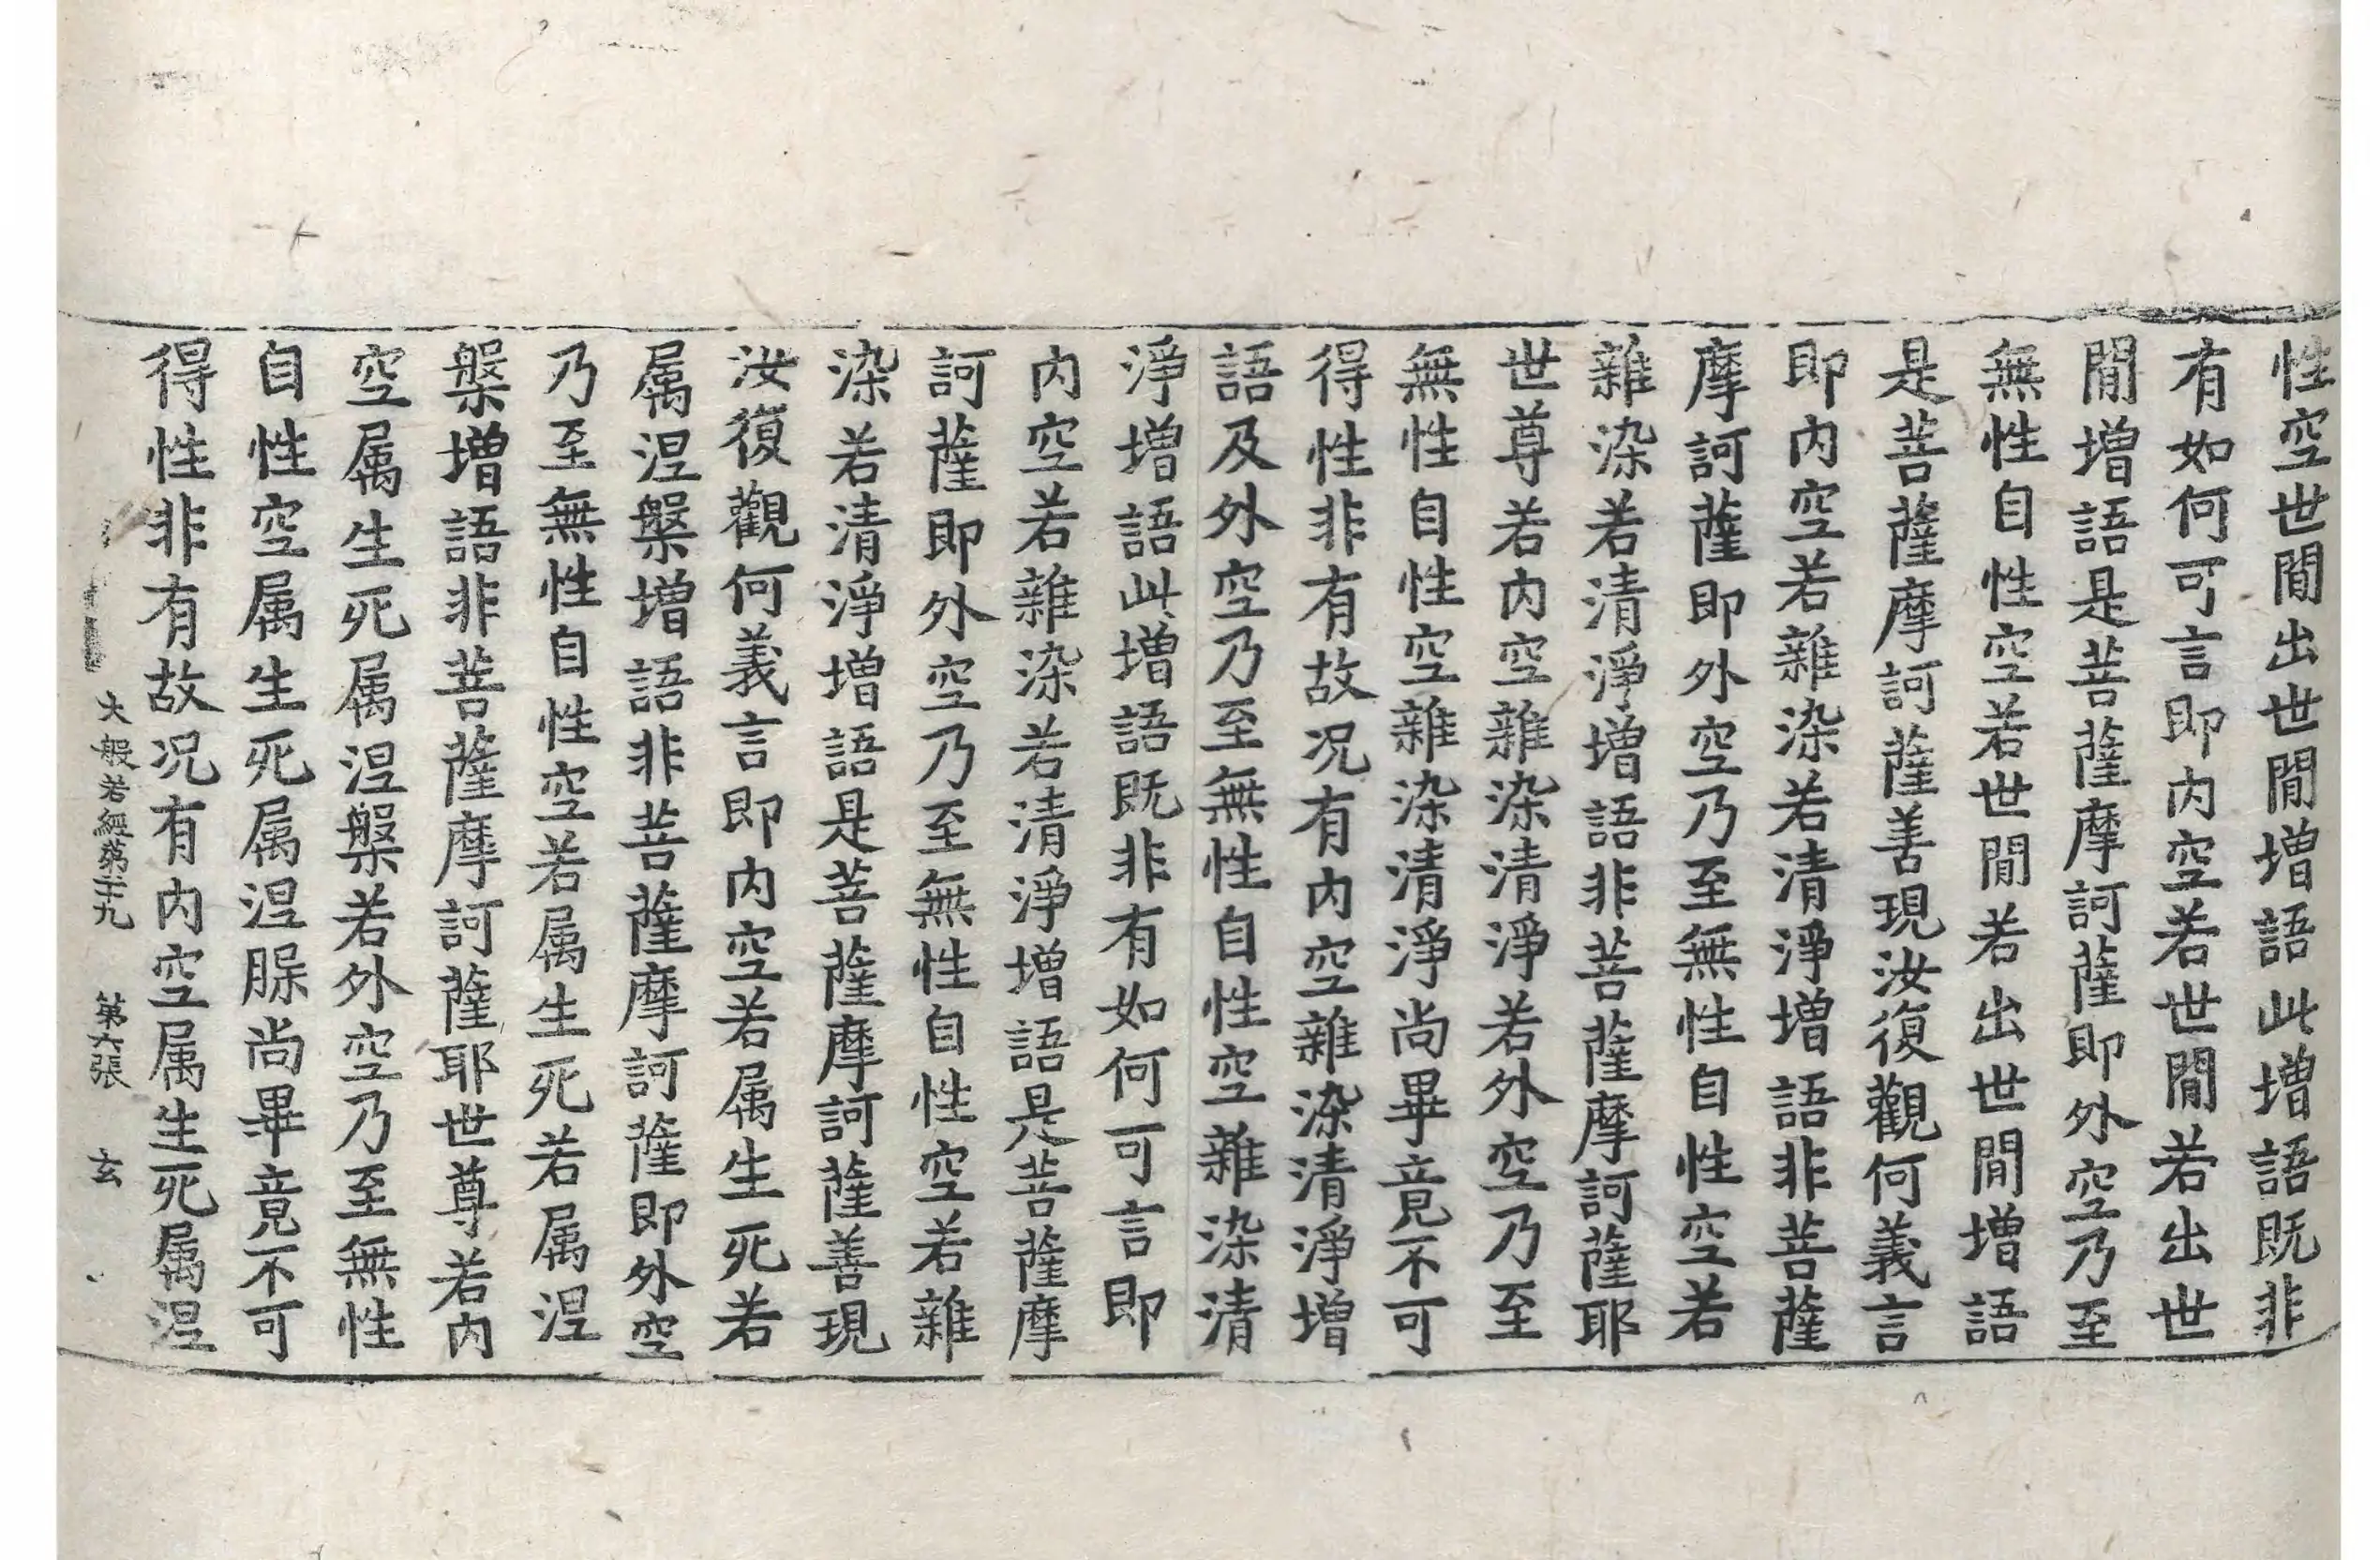 性空世閒出世閒增語此增語既非
有如何可言即內空若世閒若出世
閒增語是菩薩摩訶薩即外空乃至
無性自性空若世閒若出世閒增語
是菩薩摩訶薩善現汝復觀何義言
即內空若雜染若清淨增語非菩薩
摩訶薩即外空乃至無性自性空若
雜染若清淨增語非菩薩摩訶薩耶
世尊若內空雜染清淨若外空乃至
無性自性空雜染清淨尚畢竟不可
得性非有故况有內空雜染清淨增
語及外空乃至無性自性空雜染清
淨增語此增語既非有如何可言即
內空若雜染若清淨增語是菩薩摩
訶薩即外空乃至無性自性空若雜
染若清淨增語是菩薩摩訶薩善現
汝復觀何義言即內空若属生死若
属涅槃增語非菩薩摩訶薩即外空
乃至無性自性空若属生死若属涅
槃增語非菩薩摩訶薩耶世尊若內
空属生死属涅槃若外空乃至無性
自性空属生死属涅槃尚畢竟不可
得性非有故况有內空属生死属涅
大般若經第二十九 第六張 玄